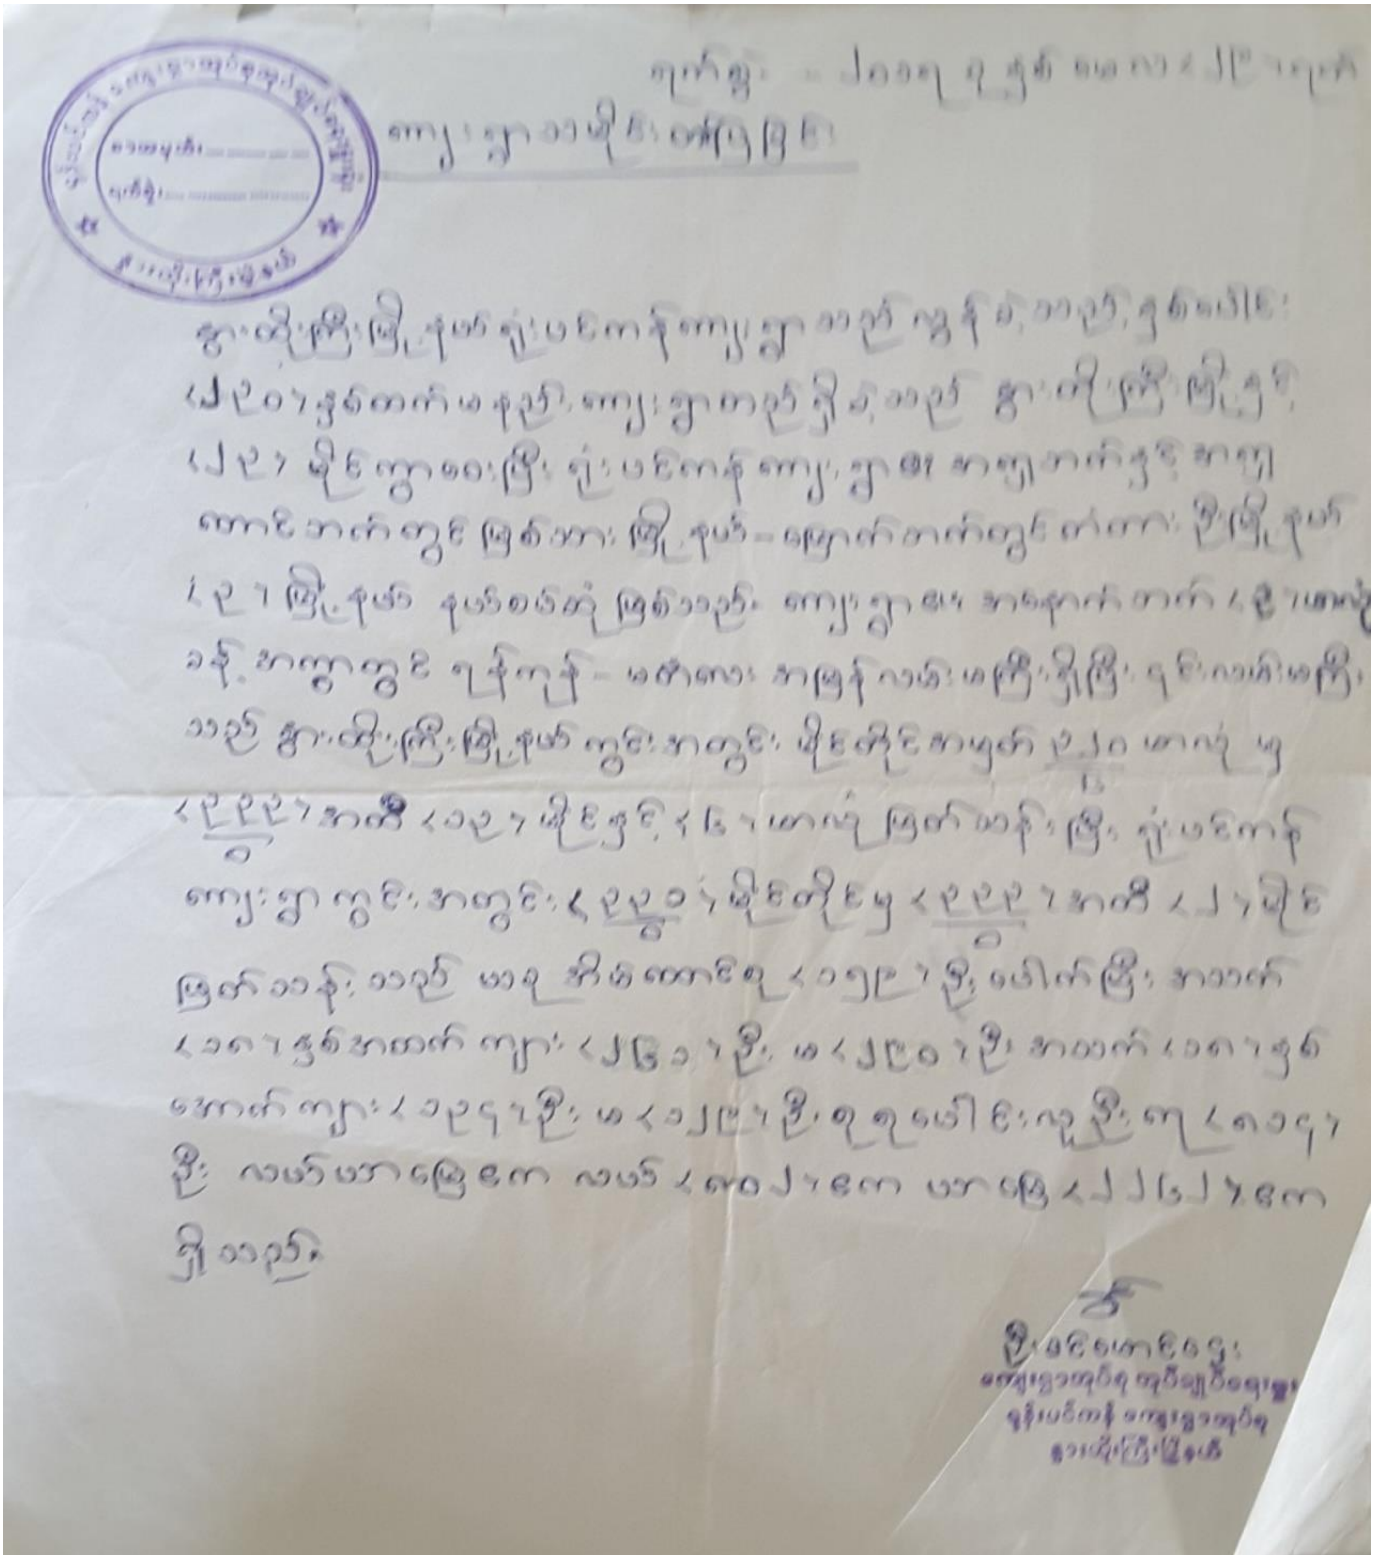 ရက်စွဲ - ၂၀၁၇ ခုနှစ် မေလ ၂၉ ရက်
ကျေးရွာသမိုင်းတင်ပြခြင်း
ဒေသမှတ်
ရက်စွဲ
နွားထိုးကြီးမြို့နယ်
နွားထိုးကြီးမြို့နယ် ရုံးပင်ကန်ကျေးရွာသည် လွန်ခဲ့သည့်နှစ်ပေါင်း
(၂၉၀) နှစ်ထက်မနည်း ကျေးရွာတည်ရှိခဲ့သည် နွားထိုးကြီးမြို့နှင့်
(၂၃) မိုင်ကွာဝေးပြီး ရုံးပင်ကန်ကျေးရွာ၏ အရှေ့ဘက်နှင့် အရှေ့
တောင်ဘက်တွင် မြစ်သားမြို့နယ် - မြောက်ဘက်တွင် တံတားဦးမြို့နယ်
(၃) မြို့နယ် နယ်စပ်တို့ဖြစ်သည်။ ကျေးရွာ၏ အနောက်ဘက်
ခန့်အကွာတွင် ရန်ကုန် - မန္တလေး အမြန်လမ်းမကြီးရှိပြီး ၎င်းလမ်းမကြီး
သည် နွားထိုးကြီးမြို့နယ်ကွင်းအတွင်း မိုင်တိုင်အမှတ် ၃၂၀/၆ ဖာလုံ မှ
(၃၃၃/၀) အထိ (၁၃) မိုင်နှင့် (၆) ဖာလုံ ဖြတ်သန်းပြီး ရုံးပင်ကန်
ကျေးရွာကွင်းအတွင်း (၃၃၁/၀) မိုင်တိုင်မှ (၃၃၃/၀) အထိ (၂) မိုင်
ဖြတ်သန်းသည် ယခု အိမ်ထောင်စု (၁၅၉) ဦးပေါက်ပြီး အသက်
(၁၈) နှစ်အထက် ကျား (၂၆၁) ဦး မ (၂၉၀) ဦး အသက် (၁၈) နှစ်
အောက် ကျား (၁၃၄) ဦး မ (၁၂၉) ဦး စုစုပေါင်းလူဦးရေ (၈၁၄)
ဦး လယ်ယာမြေဧက လယ် (၈၀၂) ဧက ယာမြေ (၂၂၆၂) ဧက
ရှိသည်။
ဦးခင်မောင်ဌေး
ကျေးရွာအုပ်စု အုပ်ချုပ်ရေးမှူး
ရုန်းပင်ကန် ကျေးရွာအုပ်စု
နွားထိုးကြီးမြို့နယ်